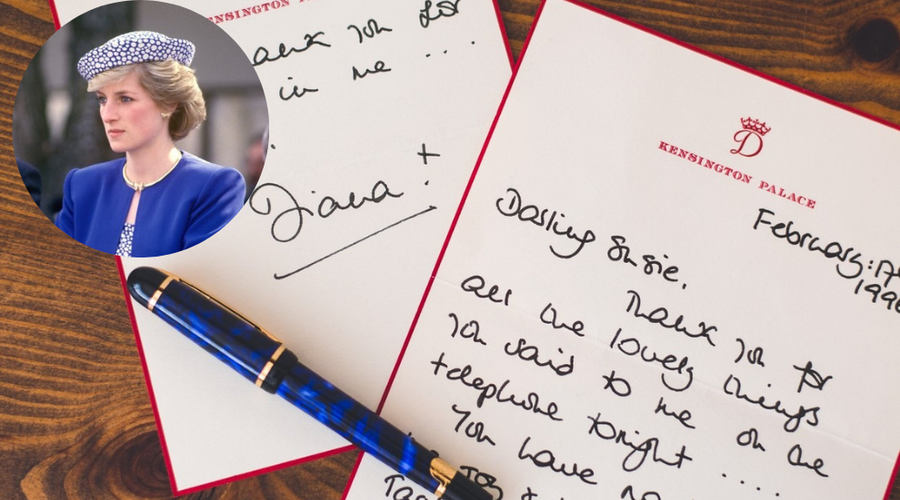 KENSINGTON PALACE
Thank you for
in me ....
Diana
D
KENSINGTON PALACE
February:
1996
Darling Susie,
Thank you for
all the lovely things
you said to me on the
telephone tonight ....
You have no